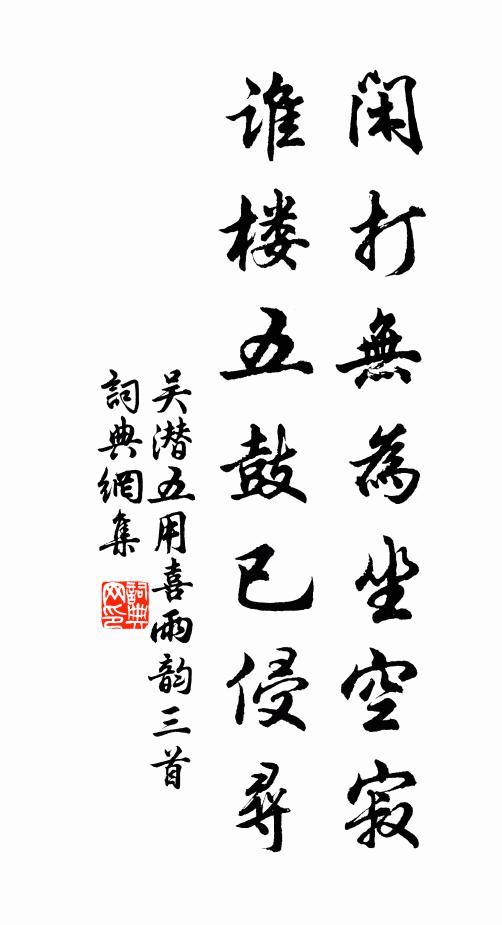 闲打無為坐空寂
谁楼五鼓已侵尋
吴潜五用喜雨韵三首
詞典網集
詞典網印